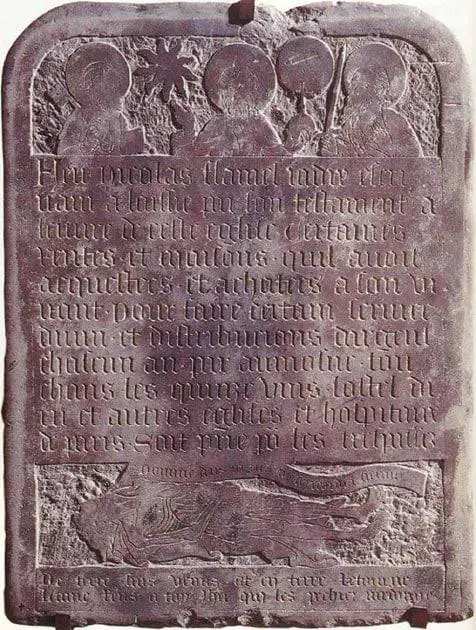 Feu nicolas flamel jadis escri
vain a laissie par son testament a
leuvre de ceste eglise certaines
rentes et maisons quil avoit
acquestees et achatees a son vi
vant pour faire certain service
divin et distribucions dargent
chascun an par aumosne tou
chans les quinze vins lostel di
eu et autres eglises et hospitaux
a paris Soit prie po les trespasses
Domine
De terre suis venus et en terre retourne
Lame rens a toy Ihu qui les pechiez pardonne